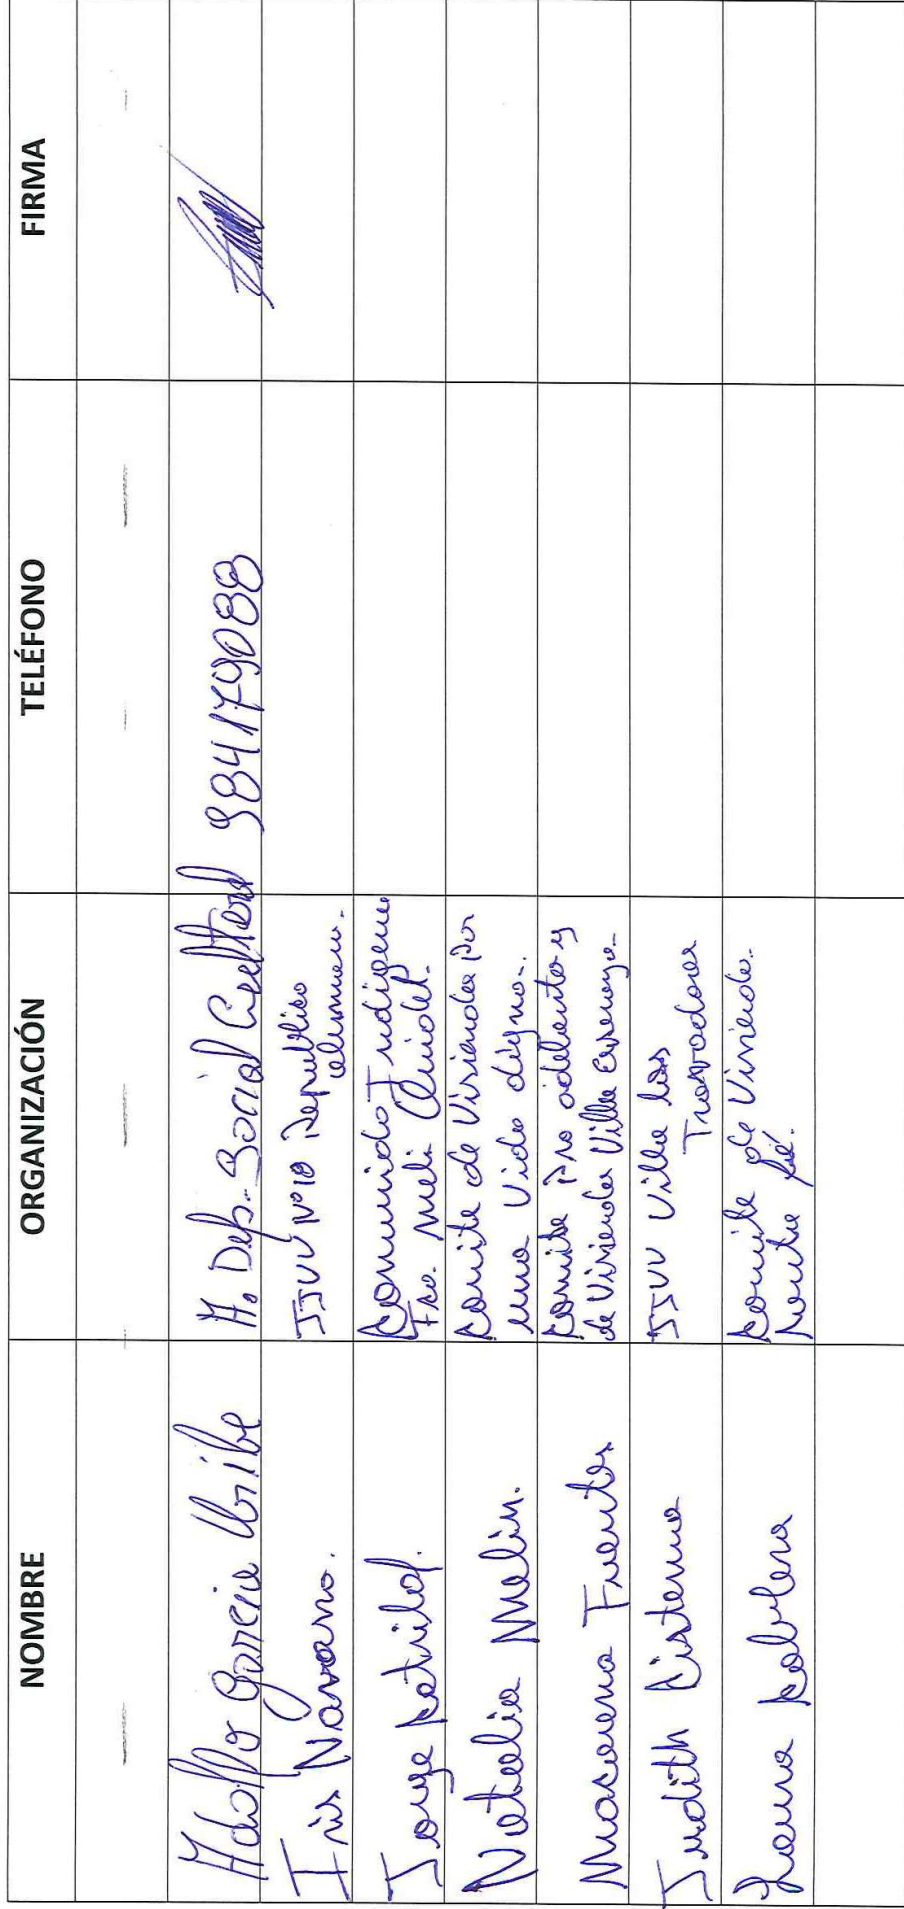 NOMBRE ORGANIZACIÓN TELÉFONO FIRMA
Adolfo Garcia Uribe A. Dep. Social Cultural 984179088
Iris Navarro. JJVV N°18 Republica
alemana.
Jorge Katrilaf. Comunida Indigena
Fco. Meli Quiolel.
Natalia Melin. Comite de Vivienda Por
una Vida digna.
Macarena Fuentes Comite Pro adelanto y
de Vivienda Villa
Judith Cisterna JJVV Villa Las
Trovadoras
Comite de Vivienda.